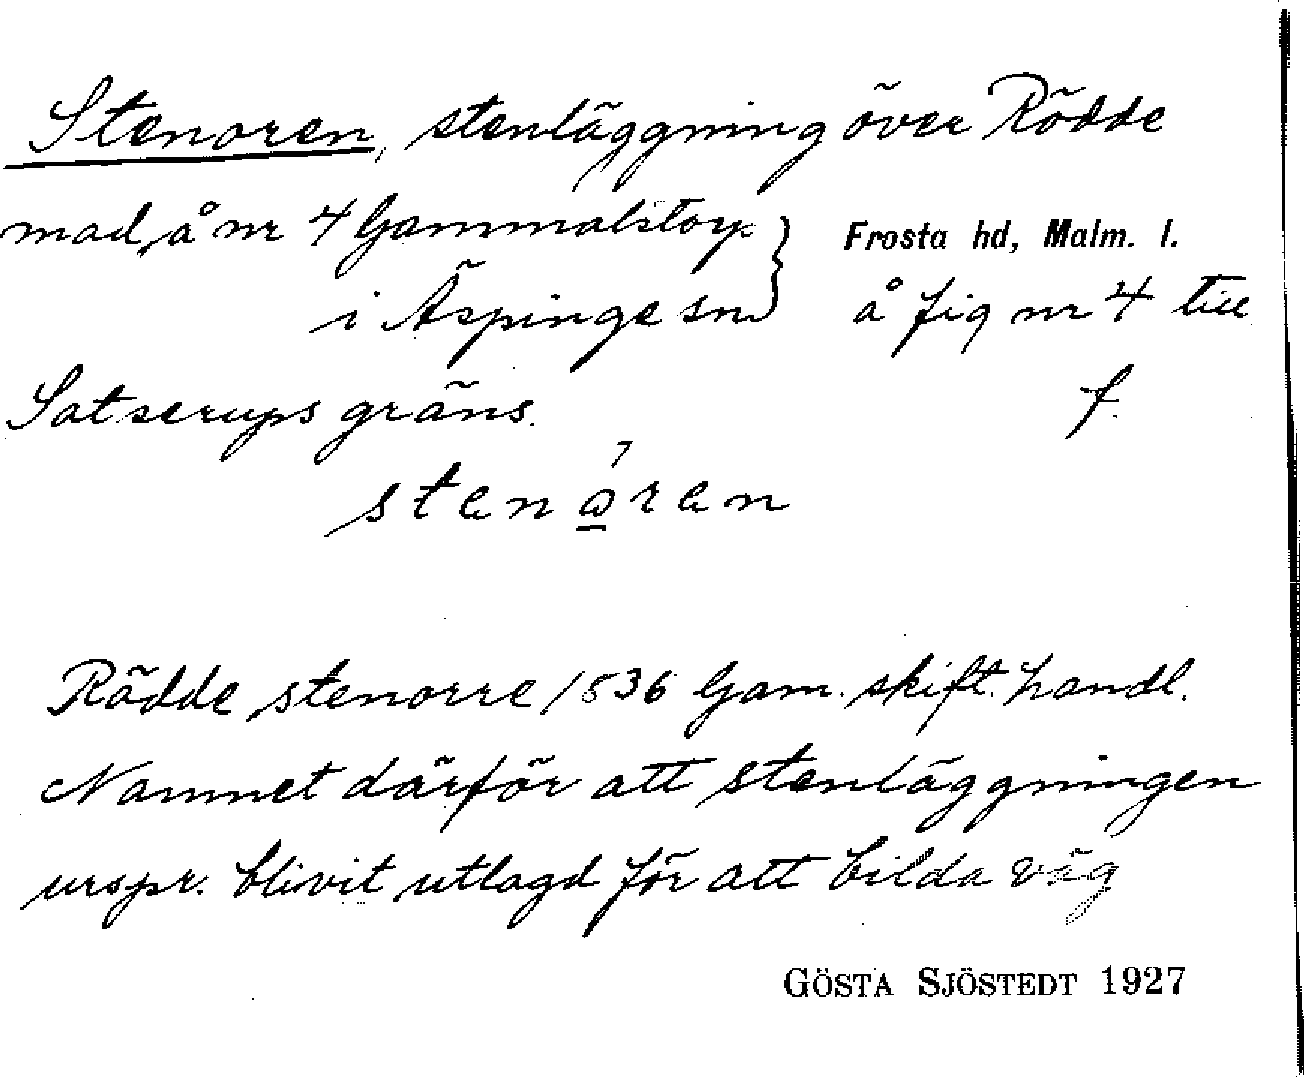 Stenoren, stenläggning över Rödde
mad, å nr 4 Gammalstorp } Frosta hd, Malm. l.
i Äspinge sn } å fig nr 4 till
Satserups gräns. f.
stenoren
Rödde stenorre 1836 Gam. skift. handl.
Namnet därför att stenläggningen
urspr. blivit utlagd för att bilda väg
GÖSTA SJÖSTEDT 1927